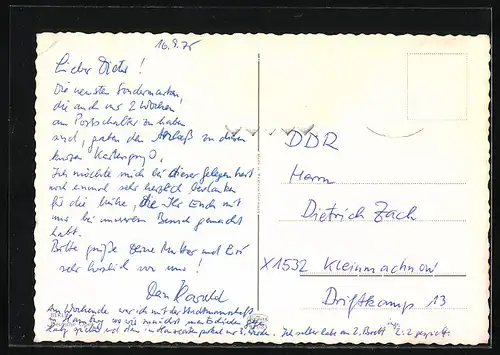 16.9.75
Lieber Dieter!
Die neusten Sondermarken,
die auch nur 2 Wochen
am Postschalter zu haben
sind, gaben den Anlaß zu diesem
kurzen Kartengruß.
Ich möchte mich bei dieser Gelegenheit
noch einmal sehr herzlich bedanken
für die Mühe, die Ihr Euch mit
uns bei unserem Besuch gemacht
habt.
Bitte grüße Deine Mutter und
sehr herzlich von uns!
Dein Harald
Am Wochenende war ich mit der Stadtmannschaft
in Hamburg wo wir
Ich selber habe am 2. Brett 2:2 gespielt.
DDR
Herrn
Dietrich Zach
X1532 Kleinmachnow
Driftkamp 13